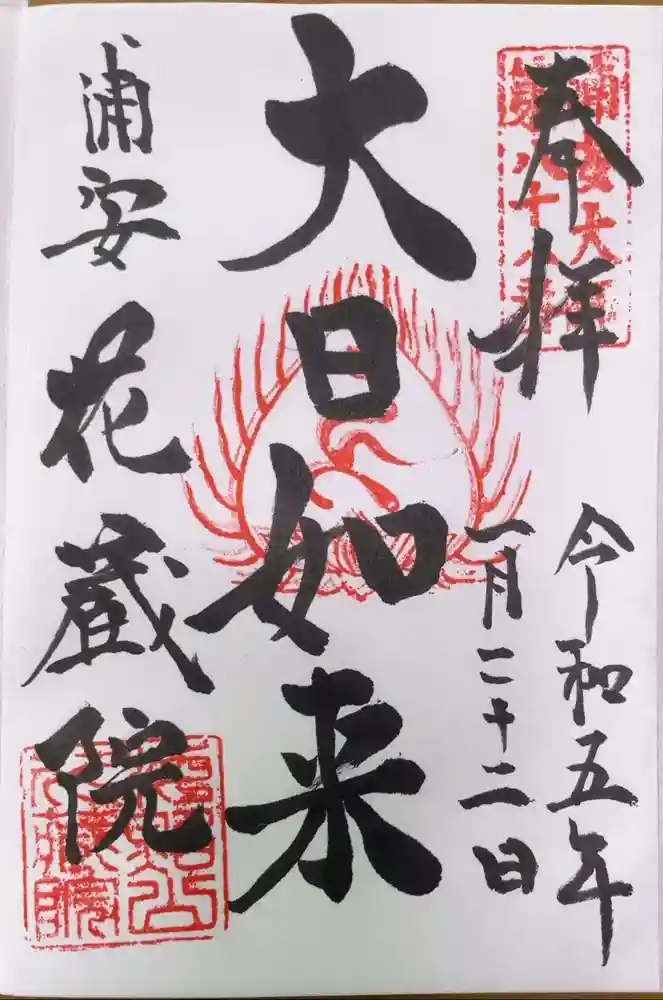 奉拝
令和五年
一月二十二日
大日如来
浦安 花蔵院